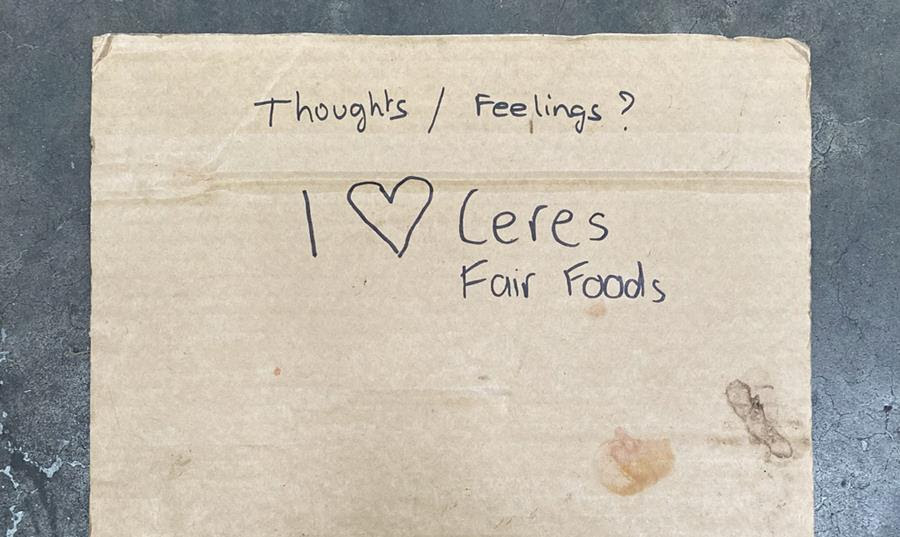 Thoughts / Feelings?
I ♡ Ceres
Fair Foods